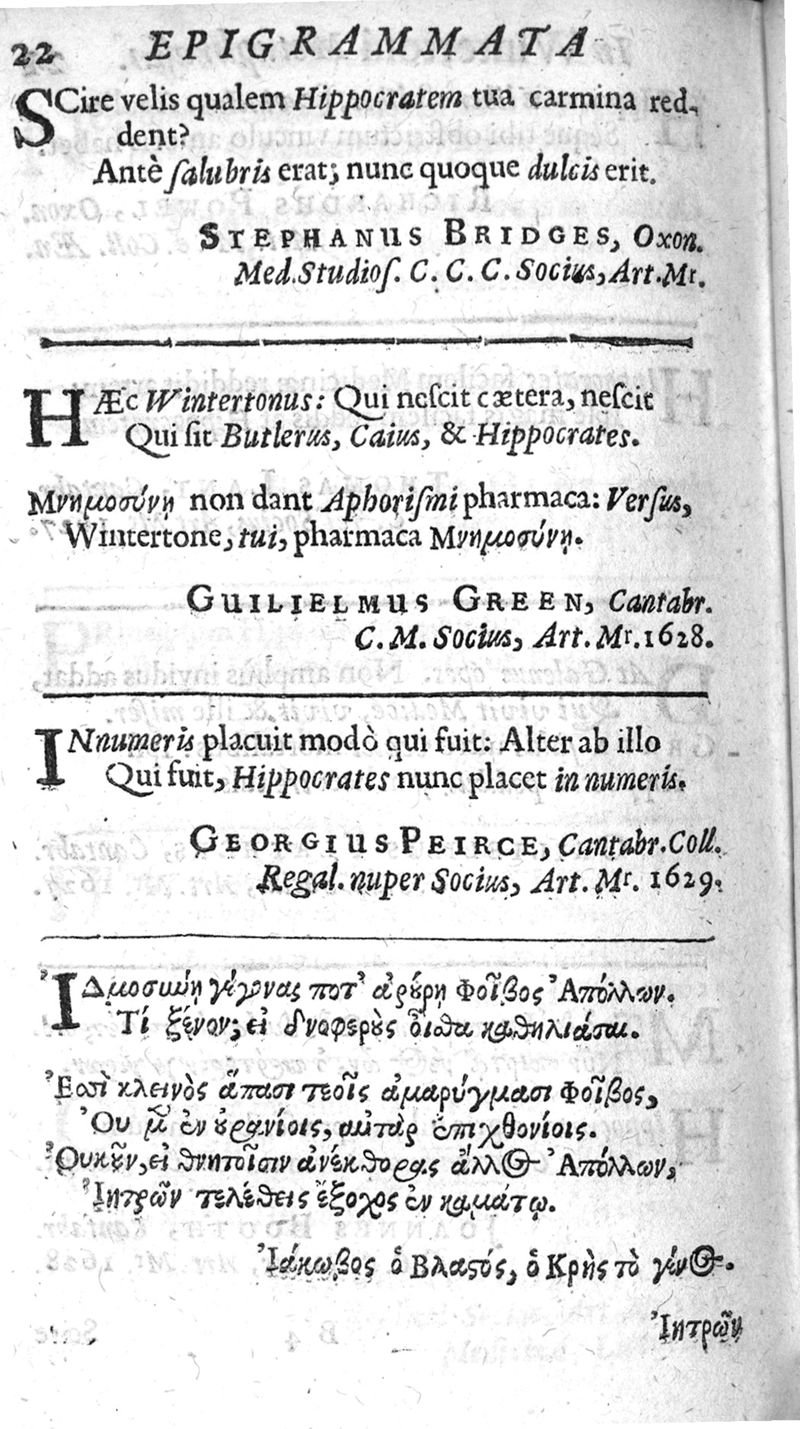 22 EPIGRAMMATA
SCire velis qualem Hippocratem tua carmina red-
dent?
Antè ſalubris erat; nunc quoque dulcis erit.
STEPHANUS BRIDGES, Oxon.
Med. Studioſ. C. C. C. Socius, Art. Mr.
HÆc Wintertonus: Qui neſcit cætera, neſcit
Qui ſit Butlerus, Caius, & Hippocrates.
Μνημοσύνη non dant Aphoriſmi pharmaca: Verſus,
Wintertone, tui, pharmaca Μνημοσύνη.
GUILIELMUS GREEN, Cantabr.
C. M. Socius, Art. Mr. 1628.
INnumeris placuit modò qui fuit: Alter ab illo
Qui fuit, Hippocrates nunc placet in numeris.
GEORGIUS PEIRCE, Cantabr. Coll.
Regal. nuper Socius, Art. Mr. 1629.
ἸΔμοσύνη γέγονας ποτ' ἀρούρῃ Φοῖβος Ἀπόλλων.
Τί ξένον; εἰ δνοφεροὺς οἶσθα καθηλιάσαι.
Ἐσσὶ κλεινὸς ἅπασι τεοῖς ἀμαρύγμασι Φοῖβος,
Ὀυ μ̃ ἐν οὐρανίοις, αὐτὰρ ἐπιχθονίοις.
Ὀυκοῦν, εἰ θνητοῖσιν ἀνέκθορας ἄλλος Ἀπόλλων,
Ἰητρῶν τελέθεις ἔξοχος ἐν καμάτῳ.
Ἰάκωβος ὁ Βλαστός, ὁ Κρὴς τὸ γένος.
Ἰητρῶν